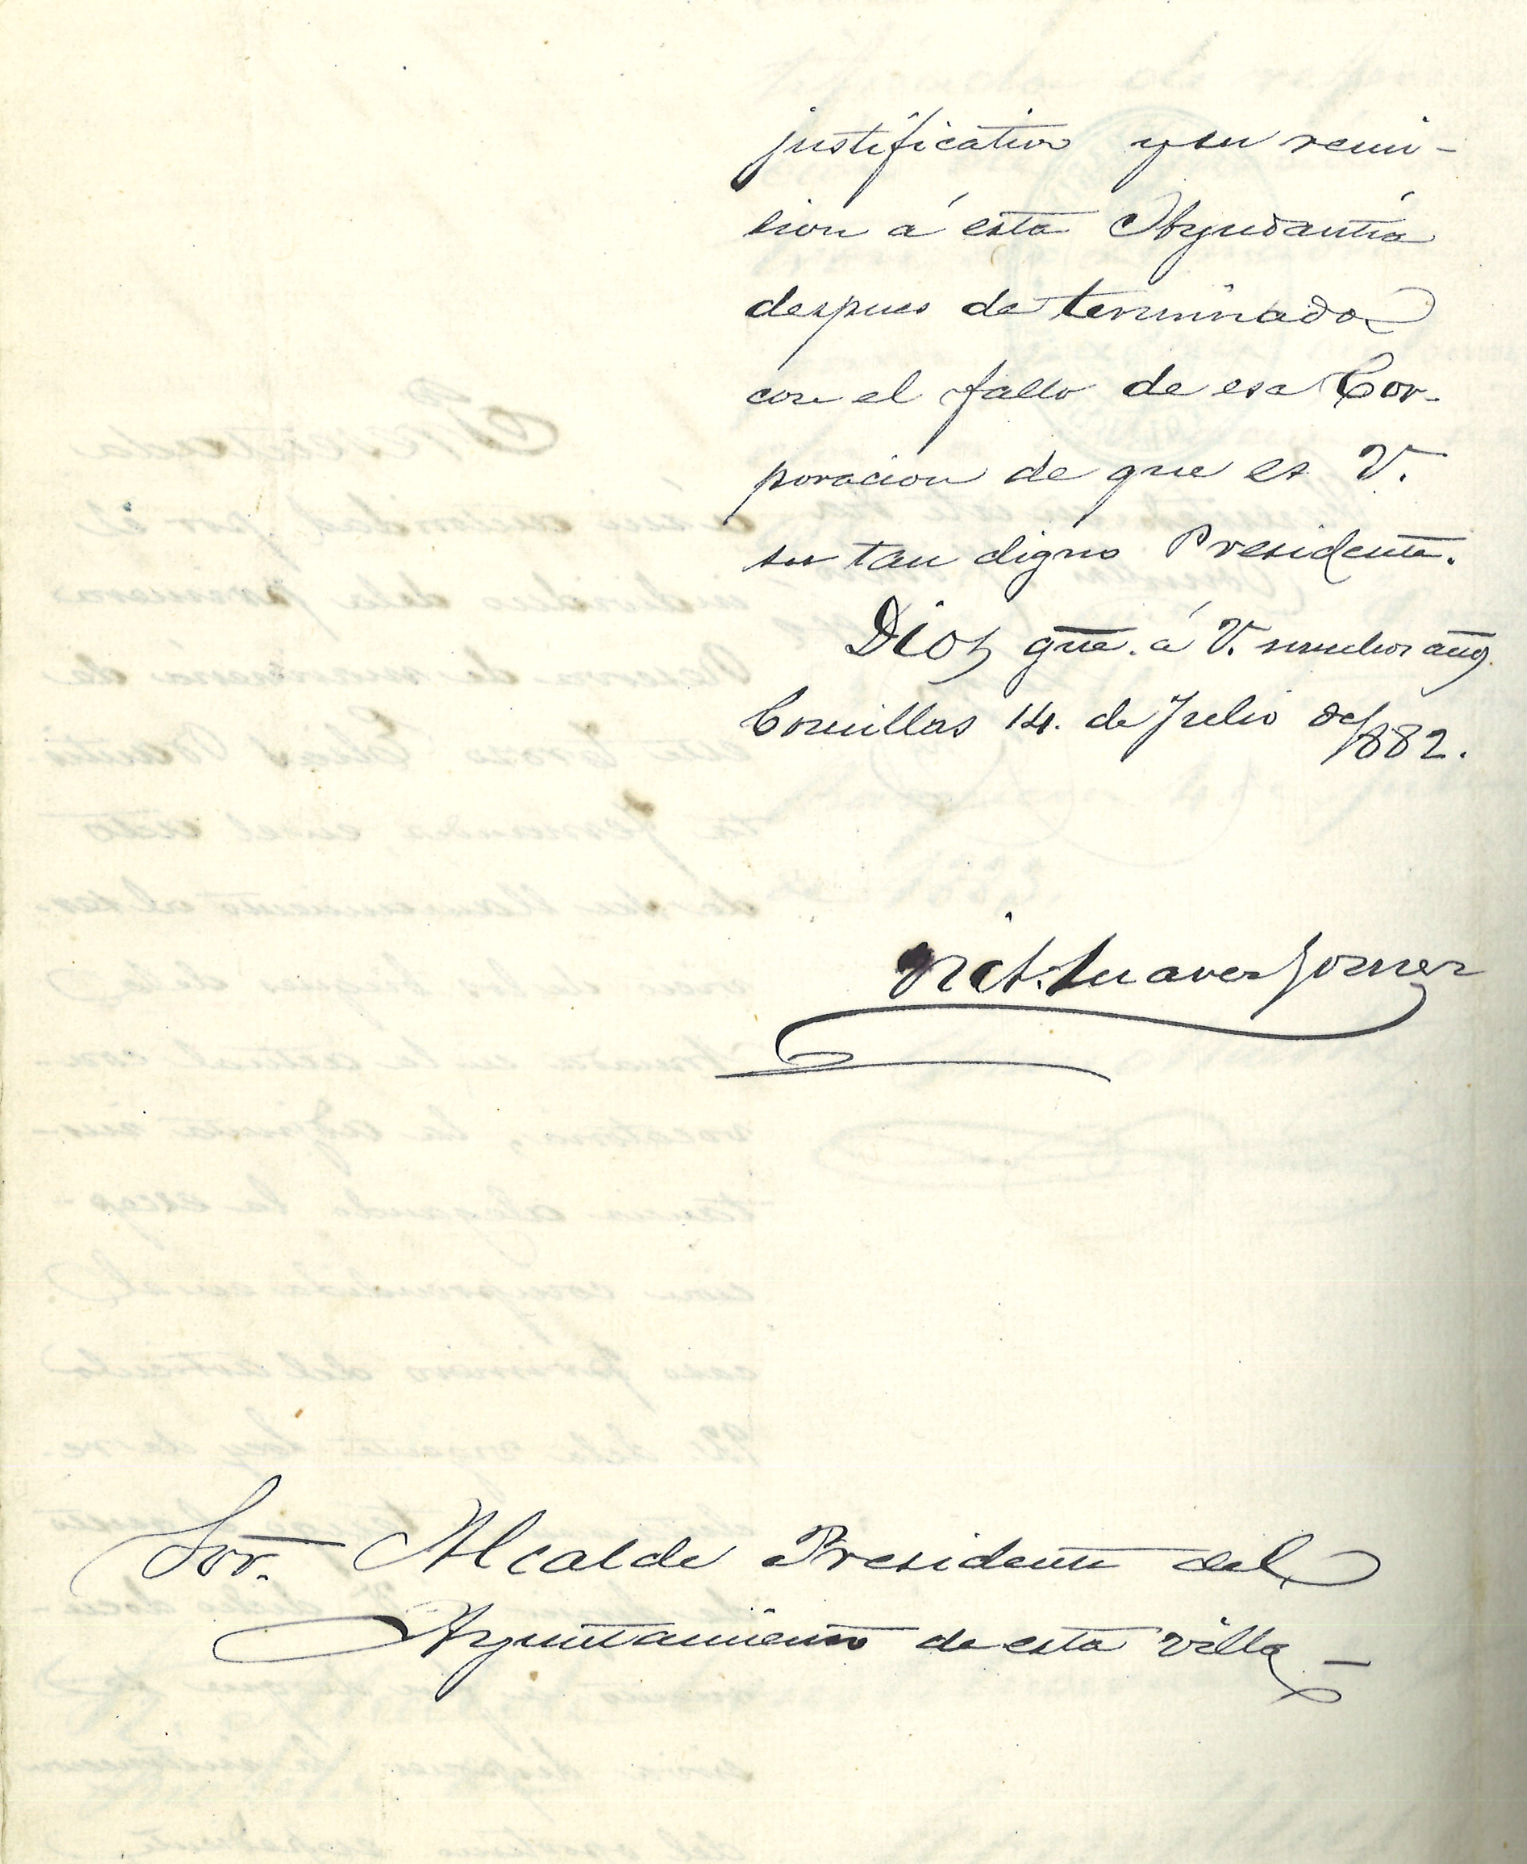 justificativo y su remi-
sion á esta Ayudantía
despues de terminado
con el fallo de esa Cor-
poracion de que es V.
su tan digno Presidente.
Dios gue. á V. muchos años.
Comillas 14. de Julio de 1882.
Suarez Gomez
Sor. Alcalde Presidente del
Ayuntamiento de esta villa_